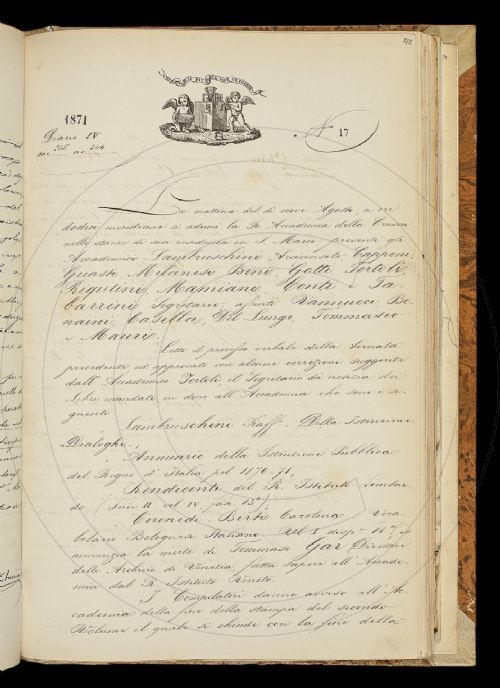 373
1871
Diario IV
dac. 205 ac. 206.
N 17
La mattina del dì nove Agosto a ore
dodici meridiane si adunò la R. Accademia della Crusca
nelle stanze di sua residenza in S. Marco presenti gli
Accademici Lambruschini Arciconsolo, Capponi,
Guasti, Milanesi, Bini, Gotti, Tortoli,
Rigutini, Mamiani, Conti e Ta-
barrini Segretario; assenti Vannucci Bo-
naini, Casella, Del Lungo, Tommaseo
e Mauri.
Letto il processo verbale della tornata
precedente ed approvato con alcune correzioni suggerite
dall'Accademico Tortoli, il Segretario dà notizia dei
Libri mandati in dono all'Accademia che sono i se-
guenti
Lambruschini Raff. Della Istruzione
Dialoghi.;
Annuario della Istruzione Pubblica
del Regno d'Italia pel 1870-71.
Rendiconti del R. Istituto Lombar-
do (Serie II vol IV fasc 13°)
Coronedi Berti Carolina Voca-
bolario Bolognese Italiano. Vol I disp. 16ª e si
annunzia la morte di Tommaso Gar Direttore
dello Archivio di Venezia fatta sapere all'Accade-
mia dal R. Istituto Veneto.
I Compilatori danno avviso all'Ac-
cademia della fine della stampa del secondo
Volume il quale si chiude con la fine della